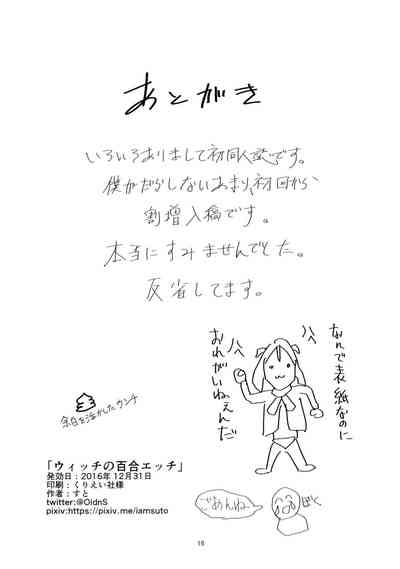 あとがき
いろいろありまして初同人誌です。
僕がだらしないあまり、初回から
割増入稿です。
本当にすみませんでした。
反省してます。
なんで表紙なのに
おれがいねぇんだ
ハヘ
ハヘ
余白を活かしたウンチ
「ウィッチの百合エッチ」
発効日：2016年12月31日
印刷：くりえい社様
作者：すと
twitter:@OidnS
pixiv:https://pixiv.me/iamsuto
ごめんね
ぼく
16